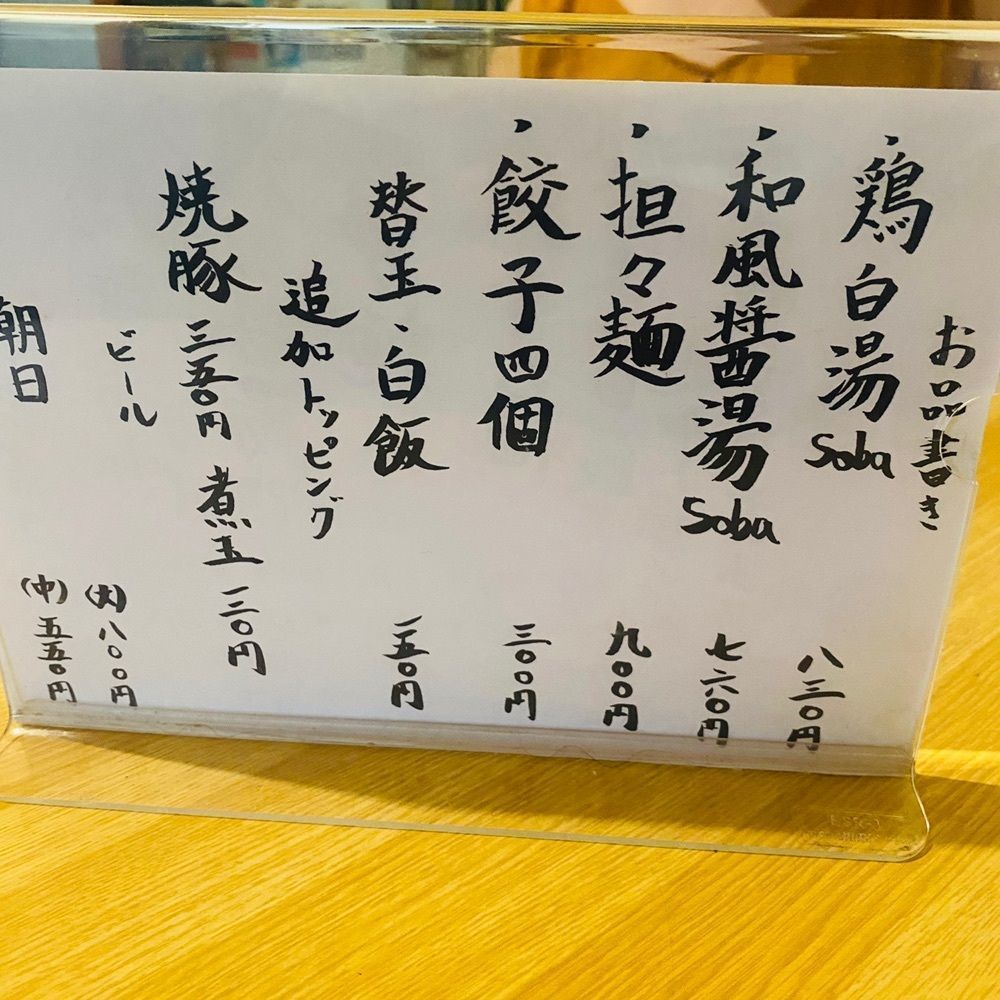 お品書き
・鶏白湯Soba 八三〇円
・和風醤湯Soba 七六〇円
・担々麺 九〇〇円
・餃子四個 三〇〇円
替玉・白飯 一五〇円
追加トッピング
焼豚 三五〇円 煮玉 一二〇円
ビール (大) 八〇〇円
朝日 (中) 五五〇円